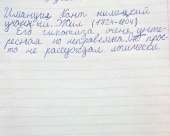 Иммануил Кант немецкий
учёный. Жил (1724-1804)
Его гипотиза, очень инте-
ресная но неправильная прос-
то не рассуждал логически.